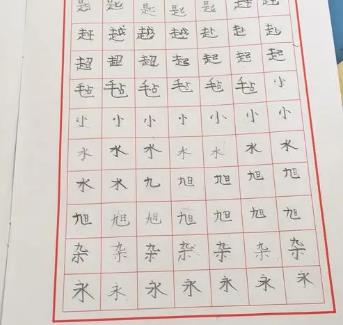 匙 匙 匙 匙 匙
越 越 越
超 超 超 超 起 起 起
毡 毡 毡 毡 毡 毡 小
小 小 小 小 小 小 小
水 水 水 水 水 水 水
水 水 九 旭 旭 旭 旭
旭 旭 旭 旭 旭 旭 旭
杂 杂 杂 杂 杂 杂 杂
永 永 永 永 永 永 永